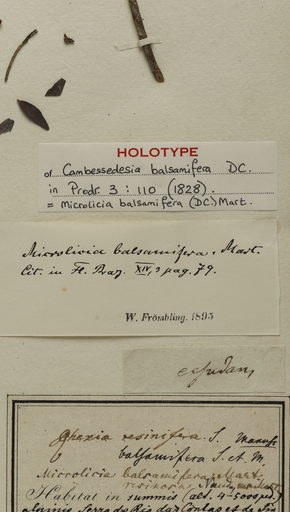 HOLOTYPE
of Cambessedesia balsamifera DC.
in Prodr. 3 : 110 (1828).
= Microlicia balsamifera (DC.) Mart.
Microlicia balsamifera, Mart.
Cit. in Fl. Braz. XIV, 3 pag. 79.
W. Frömbling. 1895
exsudans
resinifera. S.
balsamifera S. et M
Microlicia balsamifera Mart.
Habitat in summis (alt. 4-5000 ped.)
Serro do Rio das Contas et de